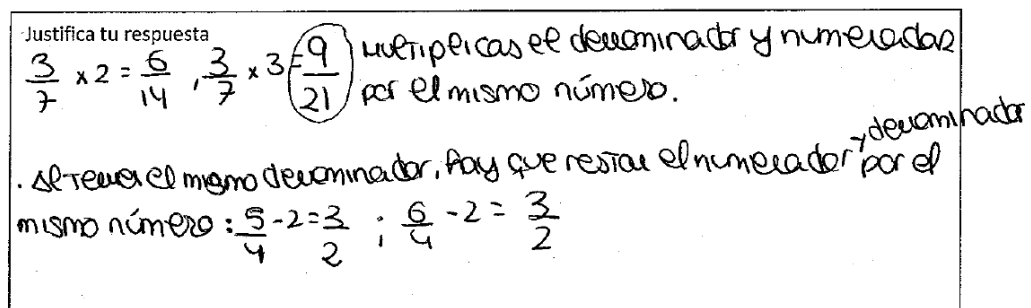 Justifica tu respuesta
3/7 x 2 = 6/14 , 3/7 x 3 = 9/21 Multiplicas el denominador y numerador
por el mismo número.
y denominador
. Al tener el mismo denominador, hay que restar el numerador por el
mismo número : 5/4 - 2 = 3/2 ; 6/4 - 2 = 3/2